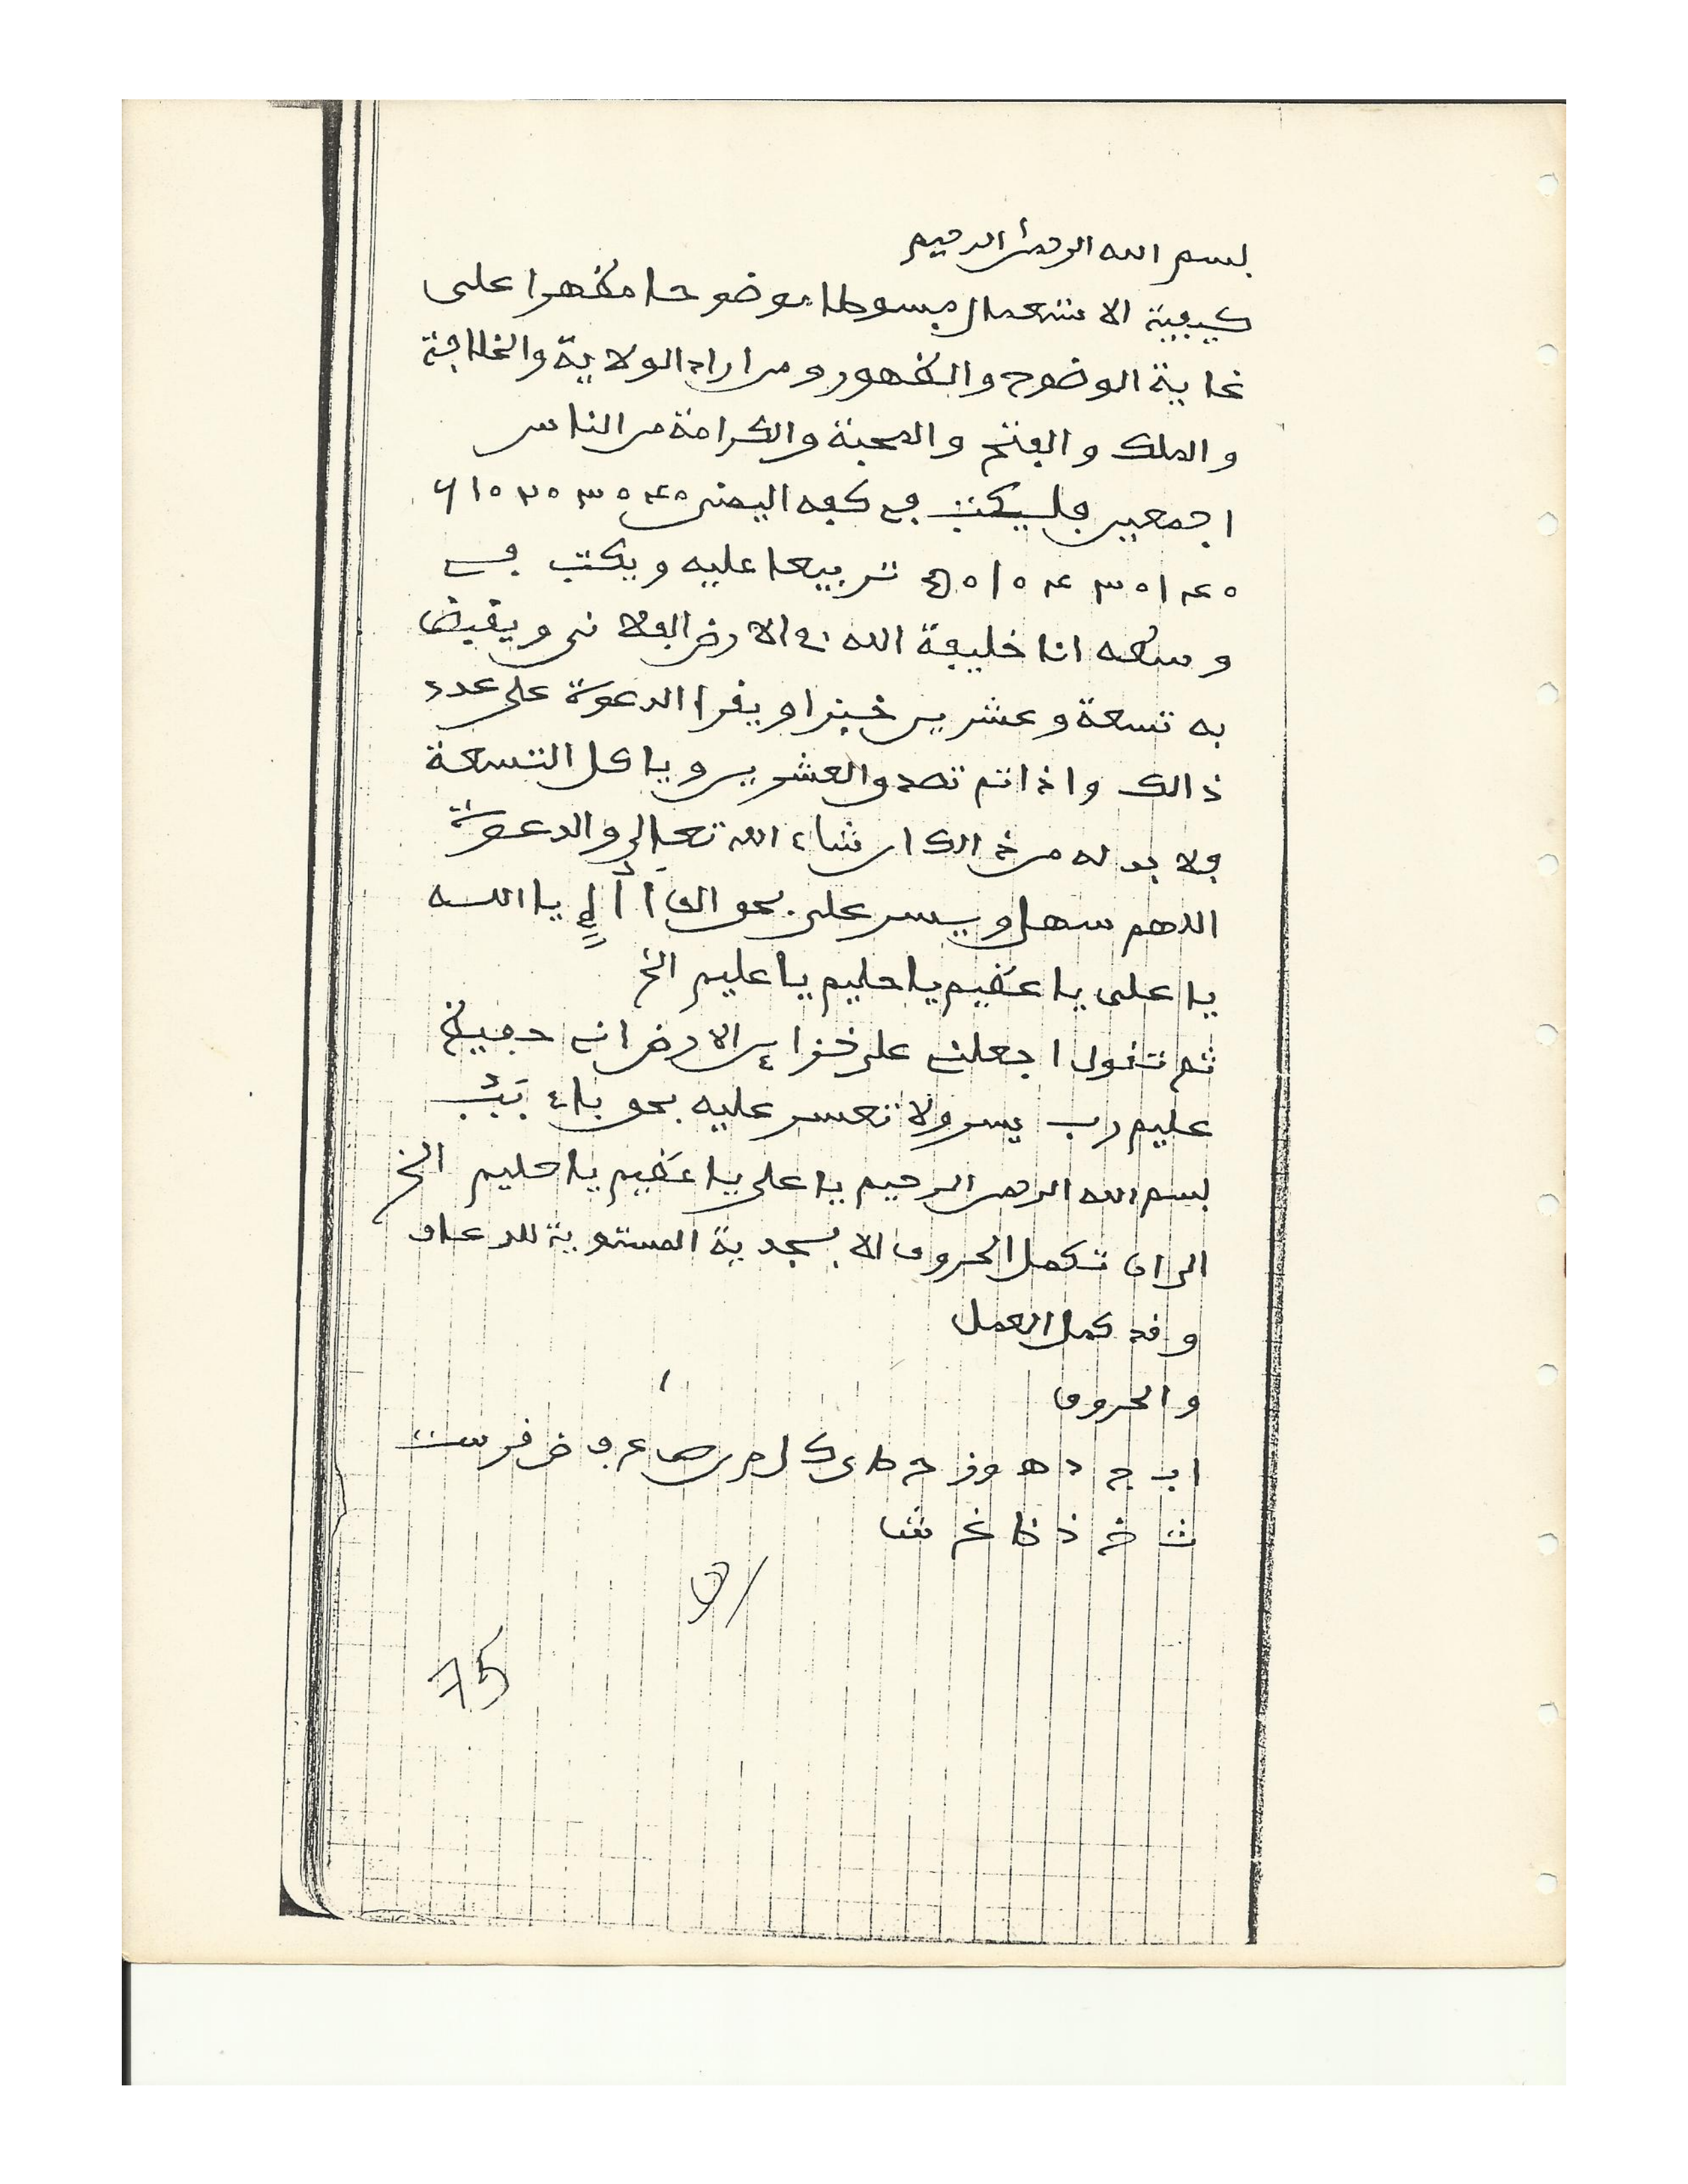 بسم الله الرحمن الرحيم
كيفية الاستعمال مبسوطا موضوحا مظهرا على
غاية الوضوح والظهور ومن اراد الولاية والخلافة
والملك والفتح والمحبة والكرامة من الناس
اجمعين فليكتب في كفه اليمنى
تربيعا عليه ويكتب في
وسطه انا خليفة الله في الارض الفلاني ويقبض
به تسعة وعشرين خبزا ويقرا الدعوة على عدد
ذالك واذا تم تصدق العشرين وياكل التسعة
فلا بد له من ذالك ان شاء الله تعالى والدعوة
اللهم سهل ويسر على بحق الف أ أُ إٍ يا الله
يا على يا عظيم يا حليم يا عليم الخ
ثم تقول اجعلني على خزائن الارض اني حفيظ
عليم رب يسر ولا تعسر عليه بحق باء
بسم الله الرحمن الرحيم يا على يا عظيم يا حليم الخ
الى ان تكمل الحروف الابجدية المستوية
وقد كمل العمل
والحروف
ا ب ج د ه و ز ح ط ي ك ل م ن ص ع ف ض ق ر س ت
ث خ ذ ظ غ ش
75